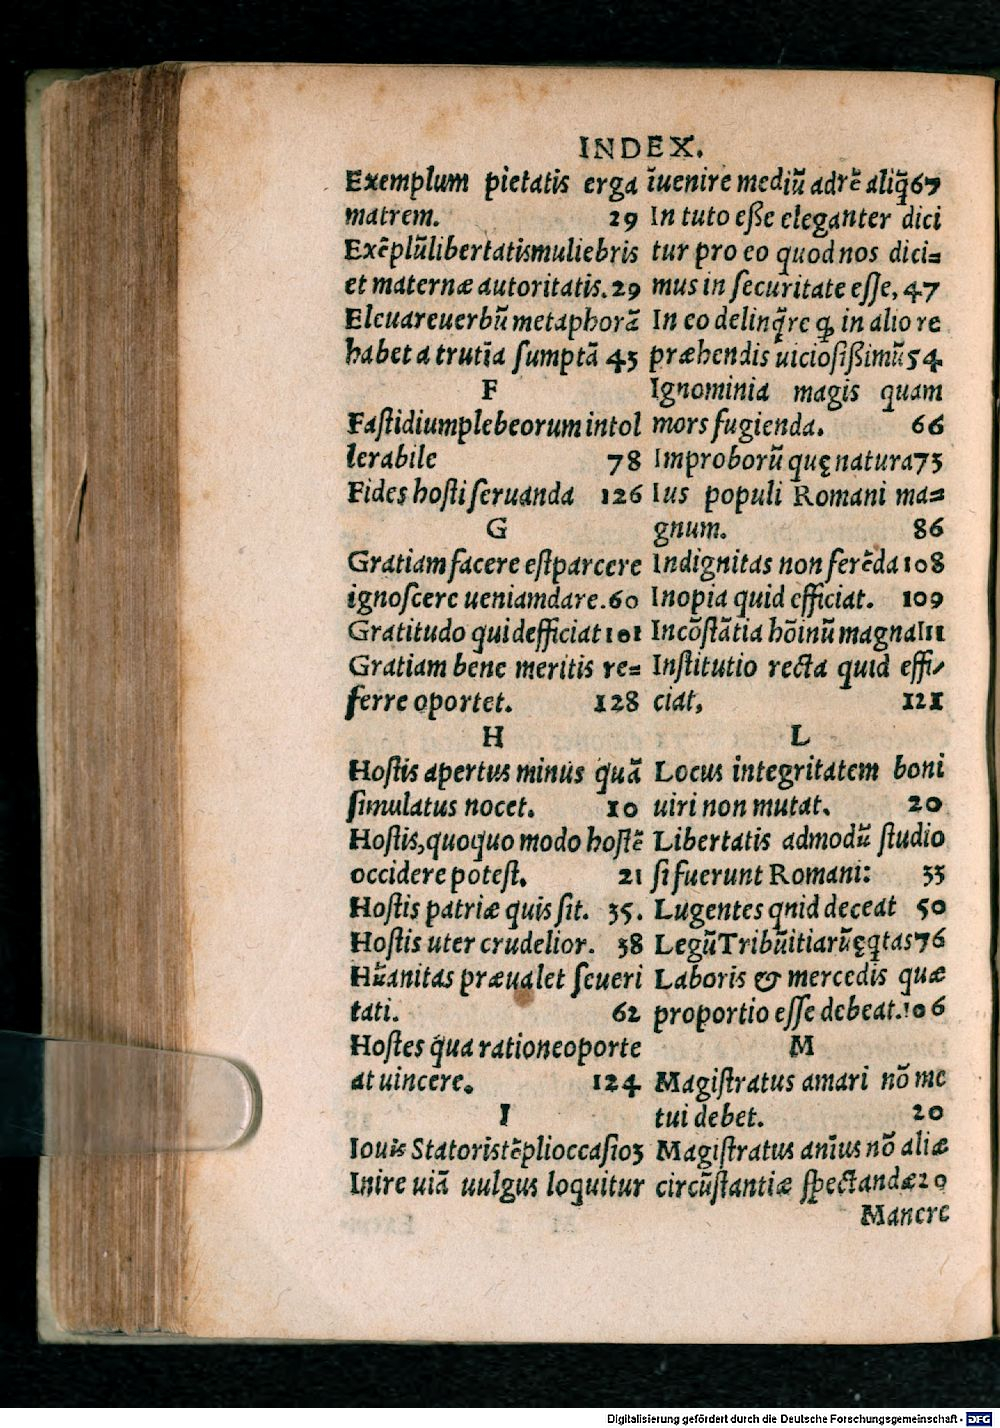 INDEX.
Exemplum pietatis erga
matrem. 29
Exẽplũ libertatis muliebris
et maternæ autoritatis. 29
Eleuare uerbũ metaphorã
habet a trutĩa sumptã 43
F
Fastidium plebeorum intol
lerabile 78
Fides hosti seruanda 126
G
Gratiam facere est parcere
ignoscere ueniam dare. 60
Gratitudo quid efficiat 101
Gratiam bene meritis re=
ferre oportet. 128
H
Hostis apertus minus quã
simulatus nocet. 10
Hostis, quoquo modo hostẽ
occidere potest. 21
Hostis patriæ quis sit. 35.
Hostis uter crudelior. 38
Hũanitas præualet seueri
tati. 62
Hostes qua ratione oporte
at uincere. 124
I
Iouis Statoris tẽpli occasio 3
Inire uiã uulgus loquitur
ĩuenire mediũ ad rẽ aliq̃ 67
In tuto esse eleganter dici
tur pro eo quod nos dici=
mus in securitate esse, 47
In eo delinq̃re q̃ in alio re
præhendis uiciosissimũ 54
Ignominia magis quam
mors fugienda. 66
Improborũ quę natura 73
Ius populi Romani ma=
gnum. 86
Indignitas non ferẽda 108
Inopia quid efficiat. 109
Incõstãtia hõinũ magna 111
Institutio recta quid effi/
ciat, 121
L
Locus integritatem boni
uiri non mutat. 20
Libertatis admodũ studio
si fuerunt Romani: 33
Lugentes qnid deceat 50
Legũ Tribũitiarũ ęq̃tas 76
Laboris & mercedis quæ
proportio esse debeat. 106
M
Magistratus amari nõ me
tui debet. 20
Magistratus anĩus nõ aliæ
circũstantiæ spectandæ 20
Manere
Digitalisierung gefördert durch die Deutsche Forschungsgemeinschaft - DFG